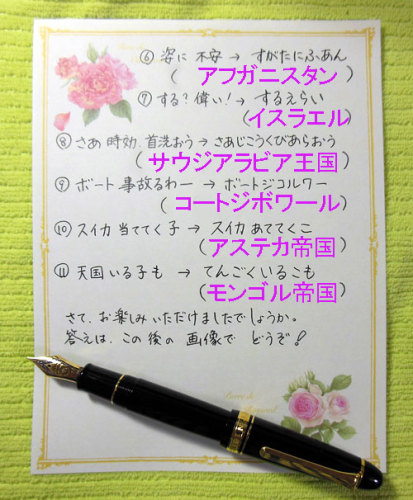 ⑥ 姿に 不安 → すがたにふあん
(アフガニスタン)
⑦ する?偉い! → するえらい
(イスラエル)
⑧ さあ 時効、首洗おう → さあじこうくびあらおう
(サウジアラビア王国)
⑨ ボート 事故るわー → ボートジコルワー
(コートジボワール)
⑩ スイカ 当ててく子 → スイカ あててくこ
(アステカ帝国)
⑪ 天国 いる子も → てんごくいるこも
(モンゴル帝国)
さて、お楽しみいただけましたでしょうか。
答えは、この後の 画像で どうぞ!